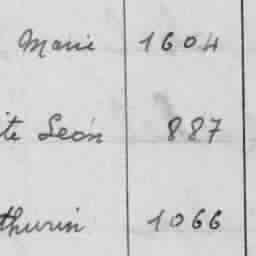 Marie 1604
te Léon 887
thurin 1066